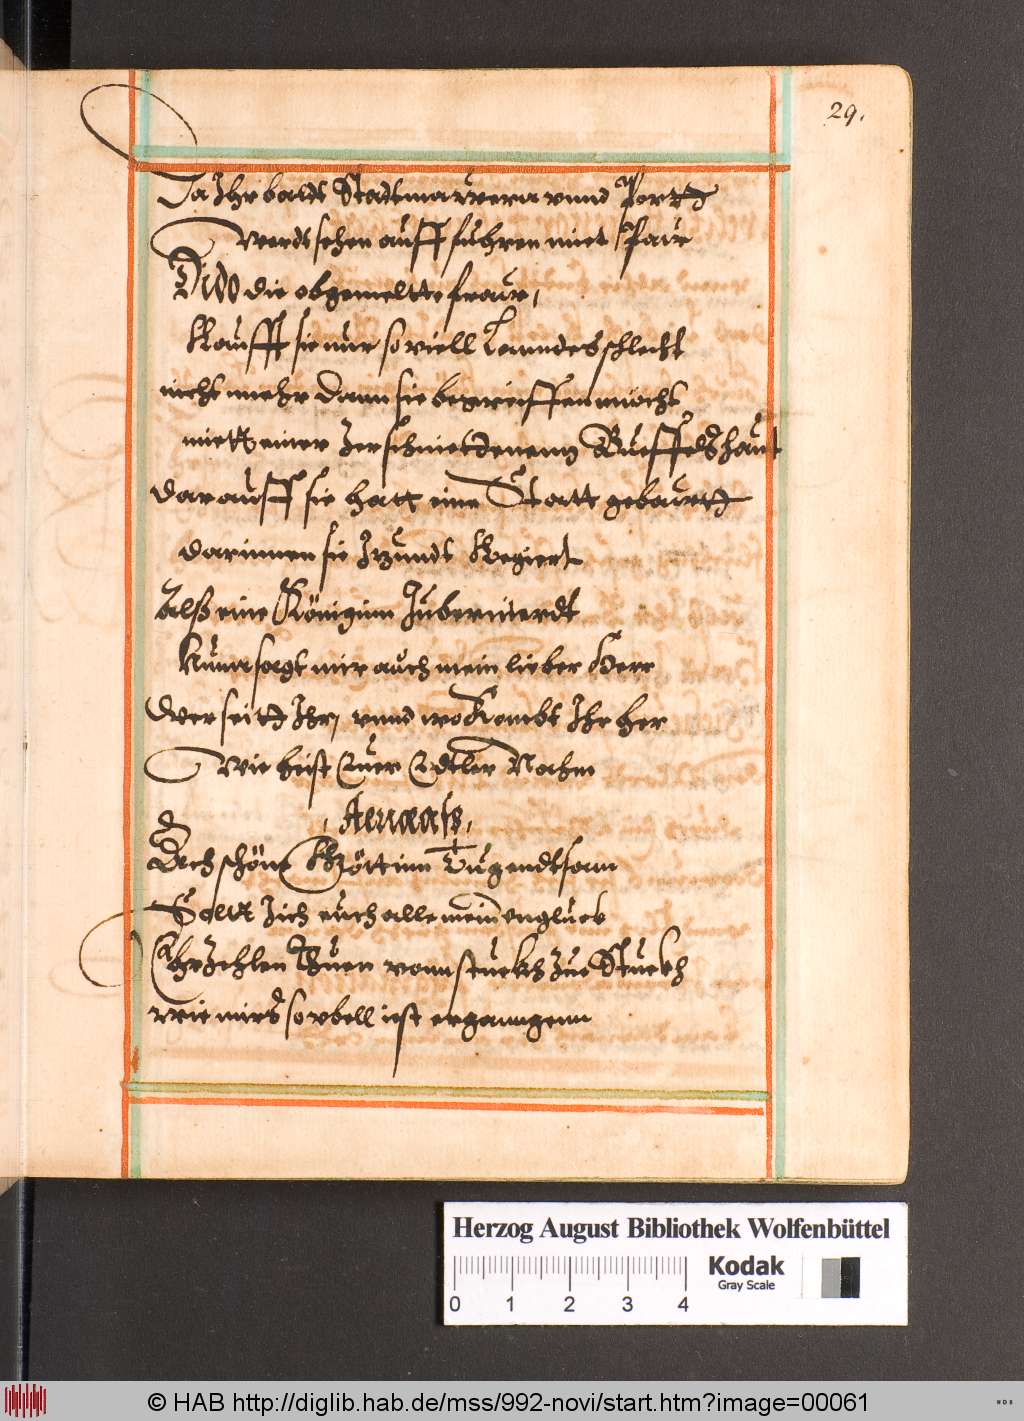 29.
Da Ihr baldt Stadtmawrenn unnd Portt
werdt sehen auff fuhren miet Paw
Dido die obgemeltte fraw,
Kaufft sie nur so viell Lanndes schlecht
nicht mehr dann sie begreiffen möcht
miett einer Zerschnietdenenn Bueffelshaut
darauff sie hatt eine Statt gebawtt
darinnen sie Itzundt Regiert
Alß eine Königinn Juberiterdt
Nunn sagt mir auch mein lieber Herr
Wer seitt Ihr, unnd wo Kombt Ihr her
Wie heist Euer Edtler Nahm
, Aeneass,
Ach schöne Göttinn Tugendtsam
Soltt Iich euch alle mein vnglueck
Ehrzehlen Thuen vonn stuekh Zue Stuekh
Wie mirs so vbell iest ergangenn
Herzog August Bibliothek Wolfenbüttel
Kodak
Gray Scale
0 1 2 3 4
© HAB http://diglib.hab.de/mss/992-novi/start.htm?image=00061